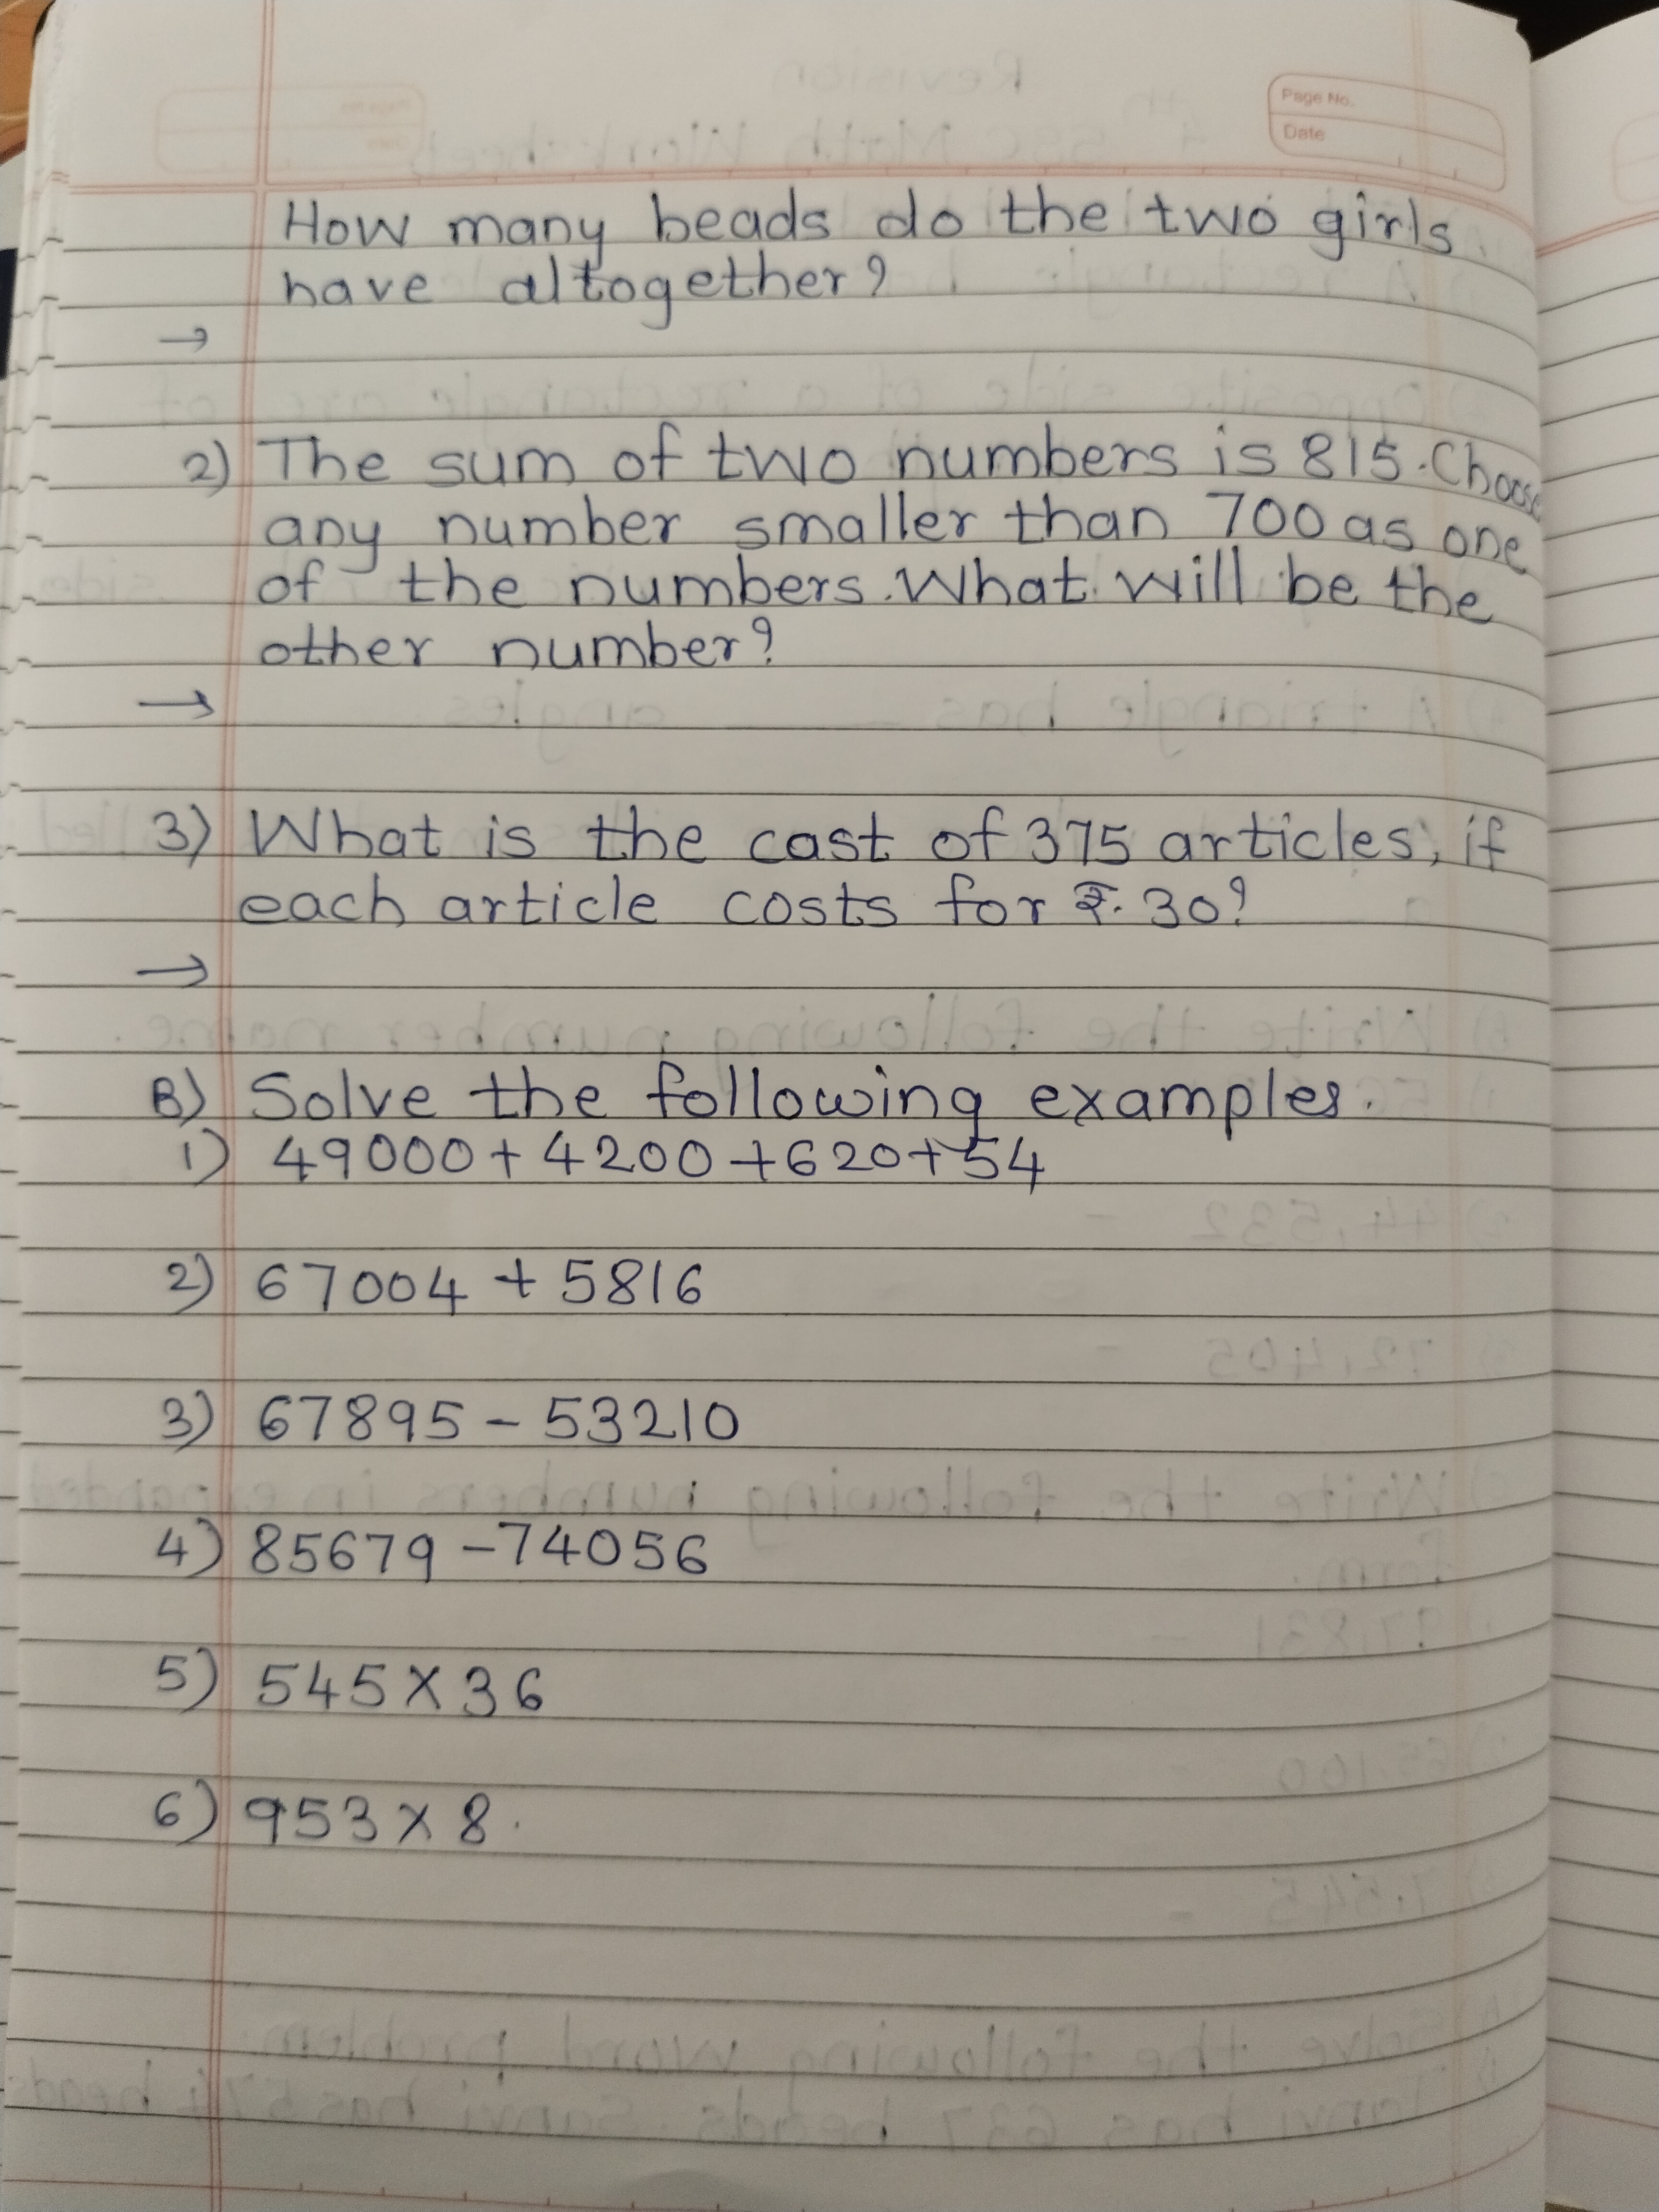 Page No.
Date
How many beads do the two girls
have altogether?
→
2) The sum of two numbers is 815. Choose
any number smaller than 700 as one
of the numbers. What will be the
other number?
→
3) What is the cast of 375 articles, if
each article costs for ₹. 30?
→
B) Solve the following examples.
1) 49000 + 4200 + 620 + 54
2) 67004 + 5816
3) 67895 - 53210
4) 85679 - 74056
5) 545 X 36
6) 953 X 8.